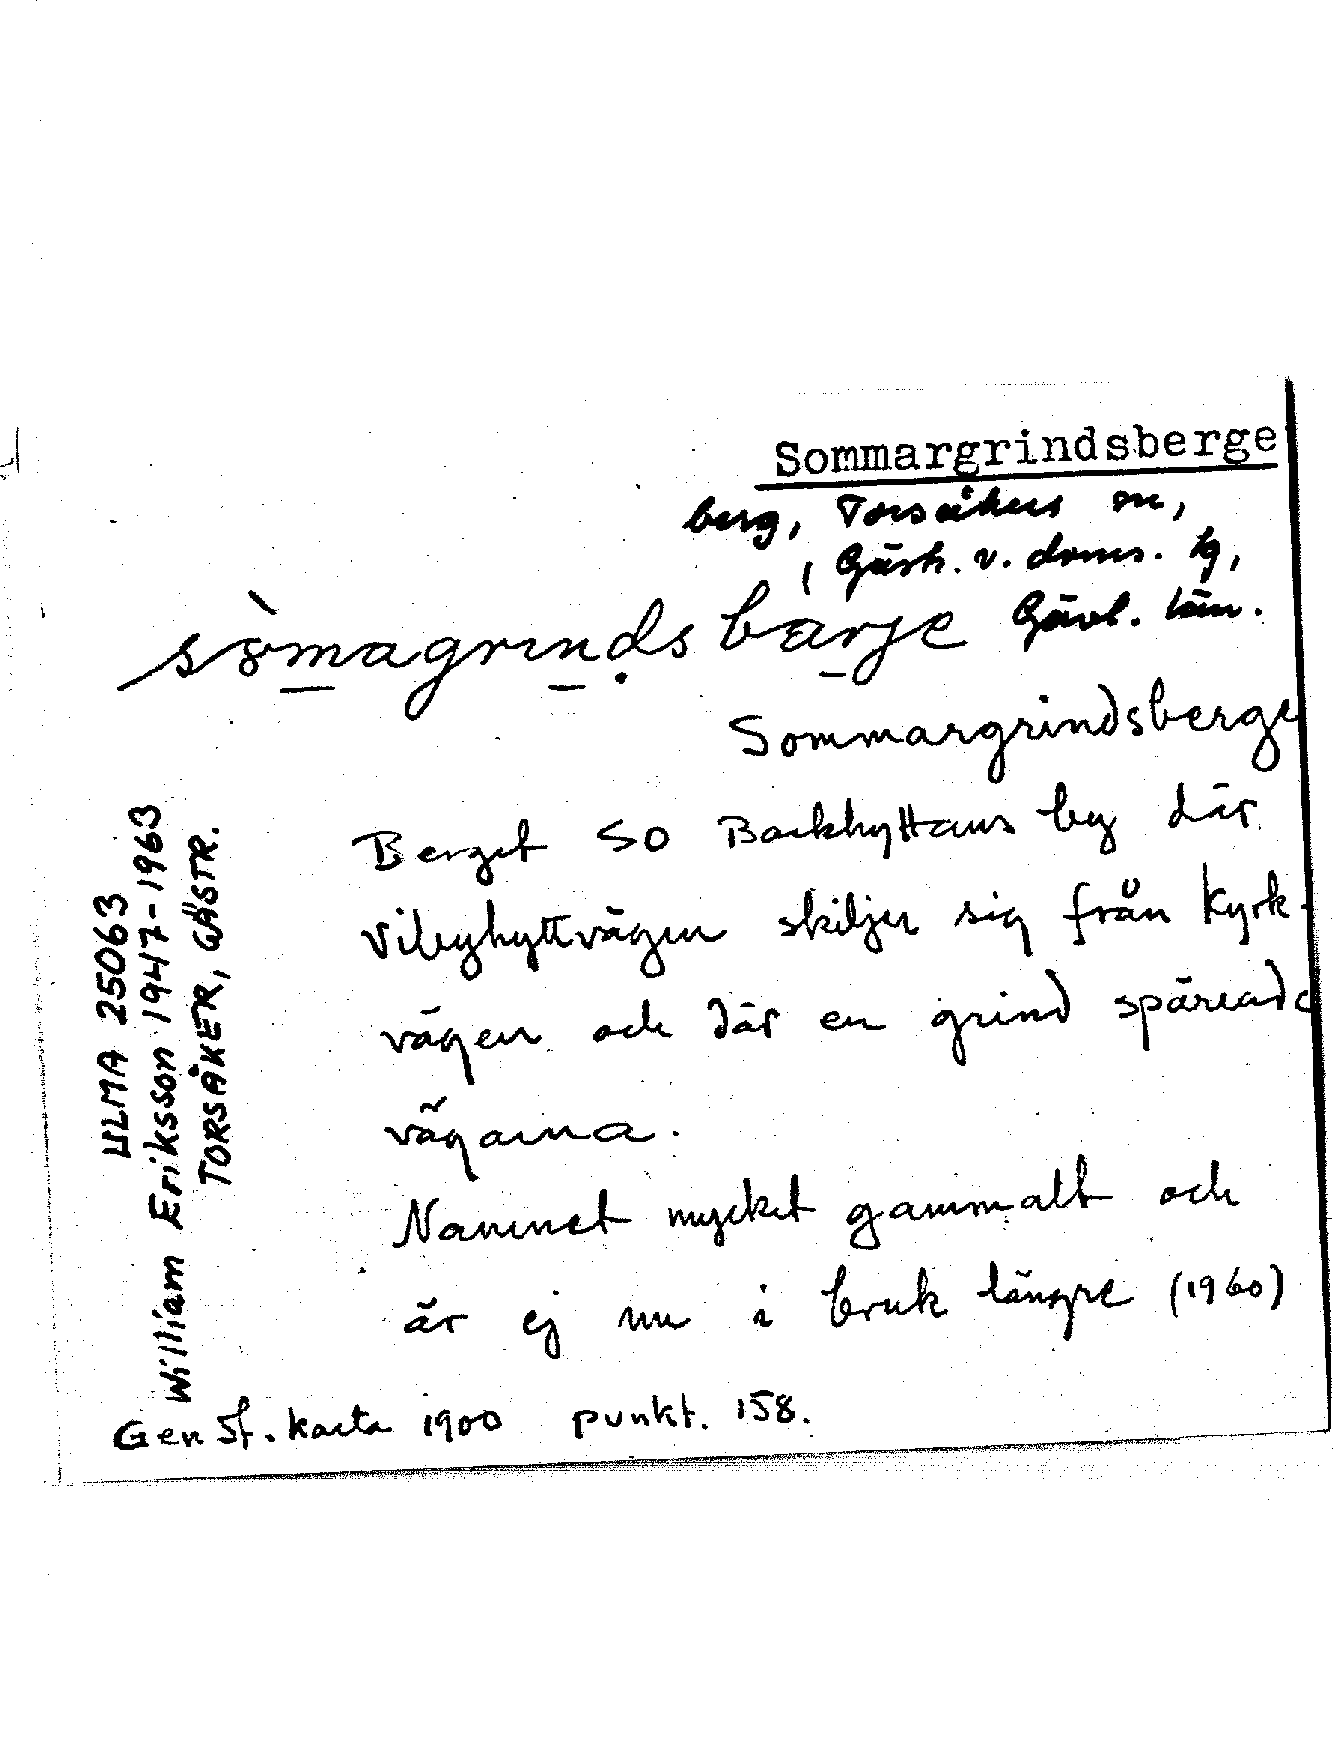 Sommargrindsberge
berg, Torsåkers sn,
Gästr. v. doms. tg,
Gävl. län.
sòmagrinds barje
Sommargrindsberge
Berget SO Backhyttans by där
Vibyhyttvägen skiljer sig från Kyrk-
vägen och där en grind spärrade
vägarna.
Namnet mycket gammalt och
är ej nu i bruk längre (1960)
Gen St. karta 1900 punkt. 158.
ULMA 25063
William Eriksson 1947-1963
TORSÅKER, GÄSTR.